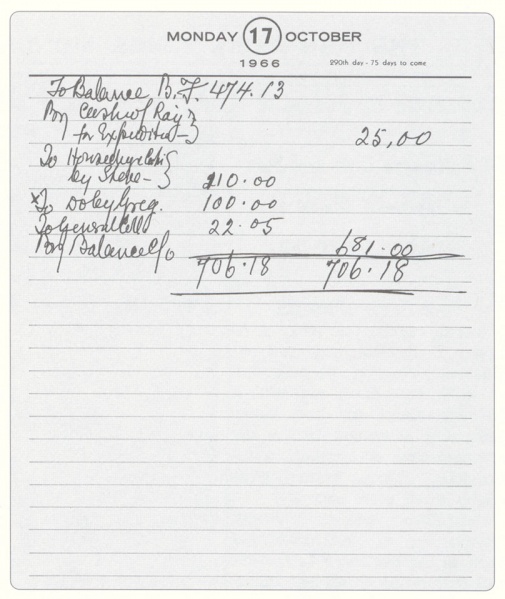 MONDAY 17 OCTOBER
1966 290th day - 75 days to come
To Balance B.F. 474.13
By Cash Ray
for 25,00
To
by 110.00
x To Doley Greg. 100.00
To General 22.05
By Balance c/o 681.00
706.18 706.18